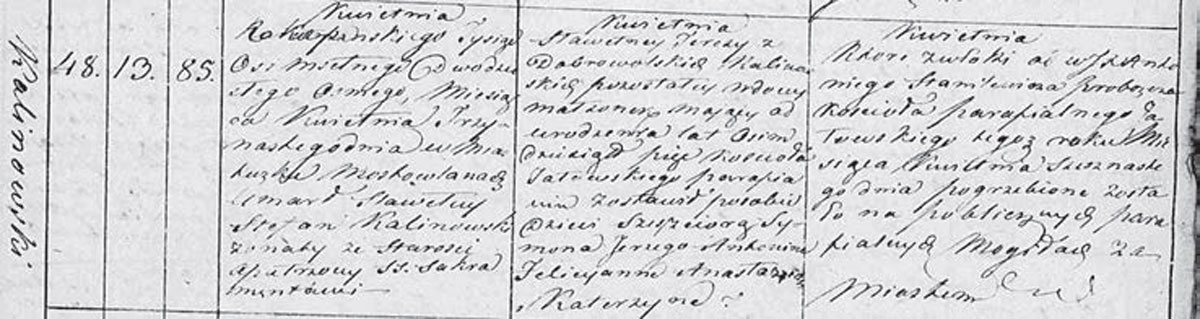 Kalinowski
48. 13. 85.
Kwietnia
Roku Pańskiego Tysiąc
Osmsetnego Dwudzie
stego Osmego, Miesią
ca Kwietnia Trzy
nastego dnia w Mia
steczku
Umarł Sławetny
Stefan Kalinowski
żonaty ze Starosci
opatrzony SS. Sakra
mentami
Kwietnia
Sławetney Jerezy z
Dabrowolskich Kalinow
skiey pozostałey wdowy
małżonek maiący od
urodzenia lat Osim
dziesiąt pięć Kościoła
parafia
nin zostawił po sobie
dzieci Sy
mona Jerzego Antonine
Felicyanne Anastazyą
Katerzyne
Kwietnia
Ktore zwłoki od WJX Anto
niego Staniewicza probosza
Kościoła parafialnego
tegoż roku Mie
siąca Kwietnia Szesnaste
go dnia pogrzebione zosta
ło na publicznych para
fialnych Mogiłach za
Miastem